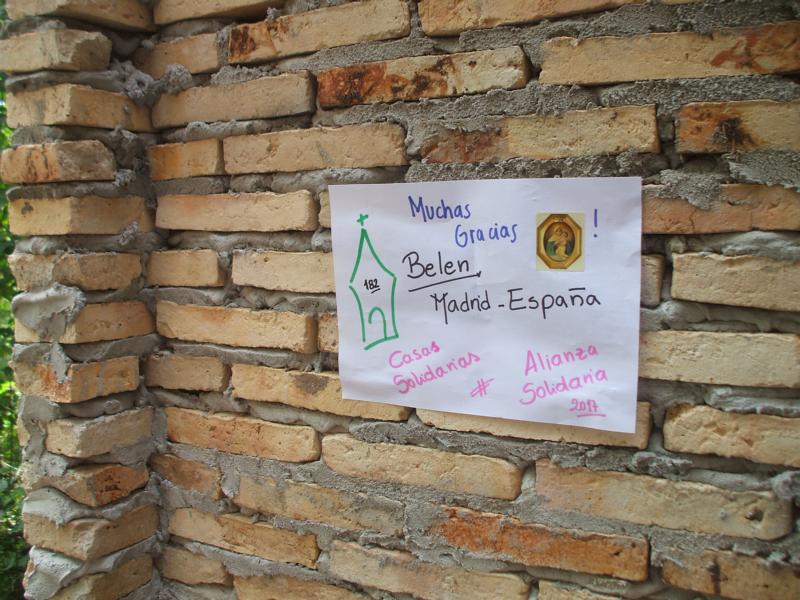 Muchas
Gracias !
182
Belen
Madrid - España
Casas
Solidarias #
Alianza
Solidaria
2017